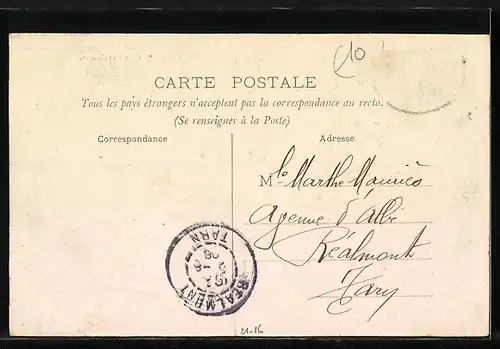 10
CARTE POSTALE
Tous les pays étrangers n'acceptent pas la correspondance au recto.
(Se renseigner à la Poste)
Correspondance
Adresse
Mlle Marthe Mauriès
Agenue d'Albi
Réalmont
Tarn
REALMONT
TARN
21-16